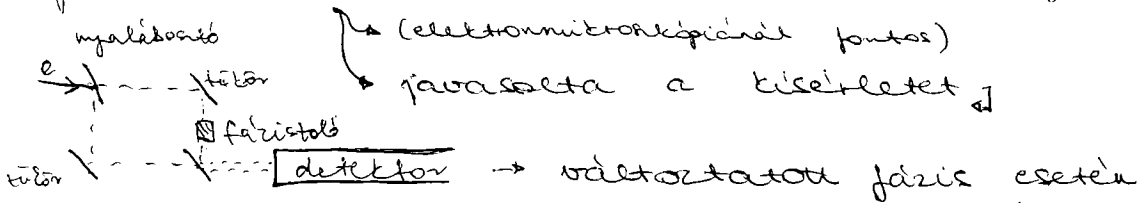 nyalábosztó (elektronmikroszkópiánál fontos)
e tükör javasolta a kísérletet
fázistoló
tükör detektor → változtatott fázis esetén